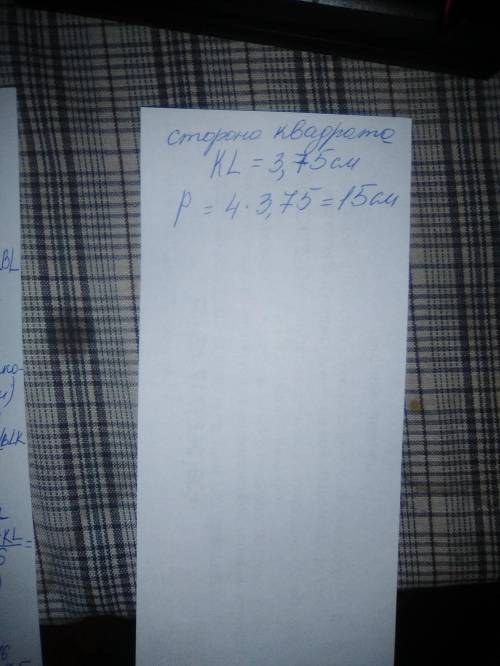 сторона квадрата
KL = 3,75 см
P = 4 · 3,75 = 15 см
BL
KL